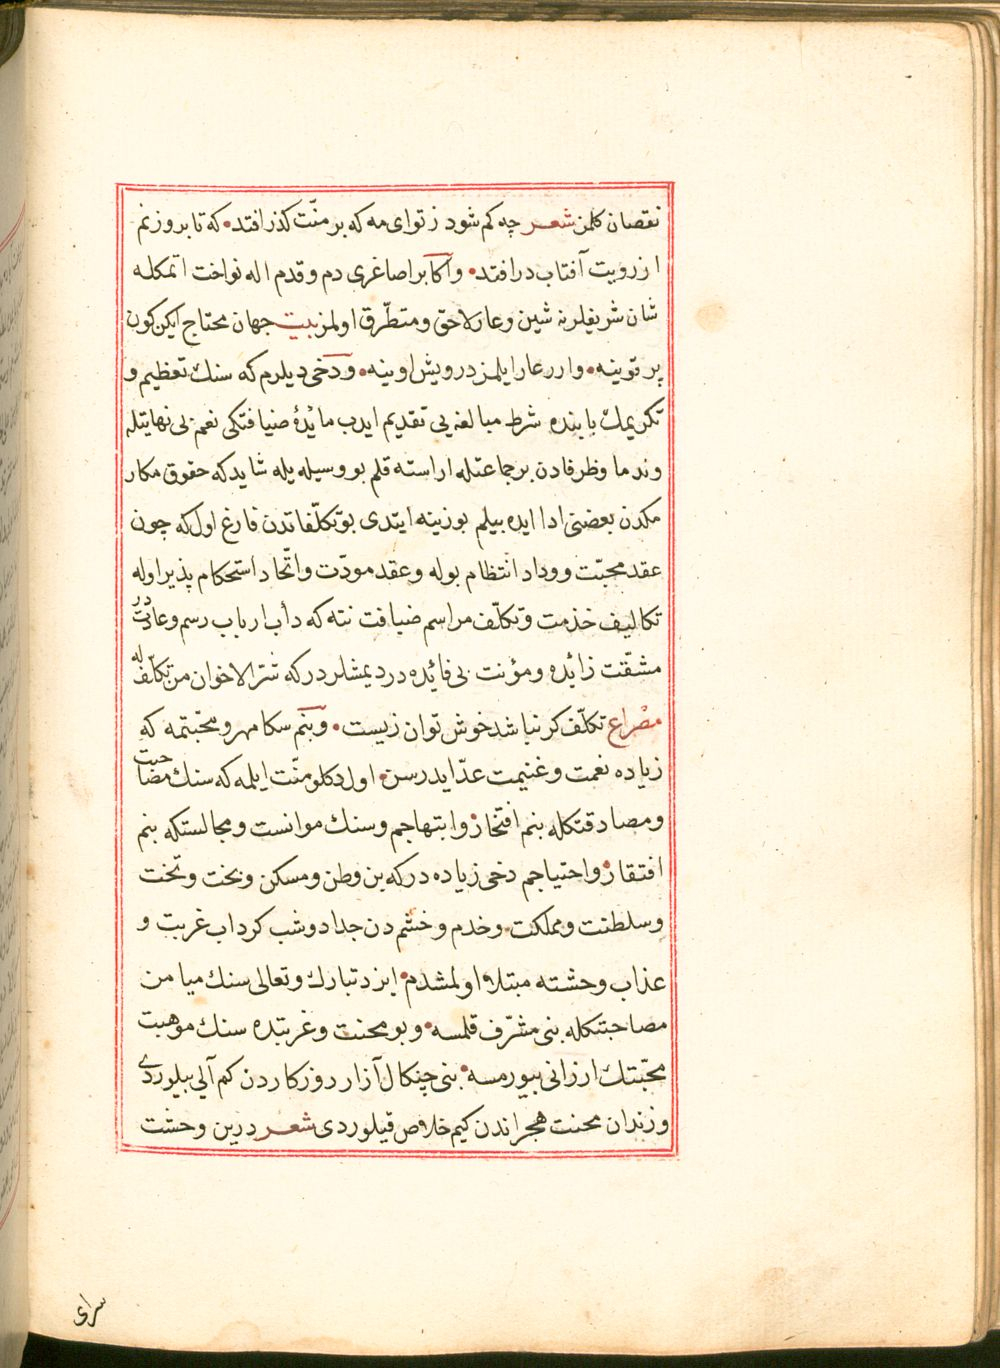 نقصان كلمز شعر چه كم شود ز تو اى مه كه بر منّت كذر افتد كه تا بروزنم
از رويت آفتاب در افتد واكا بر اصاغرى دم و قدم اله نواخت اتمكله
شان شريفلرنه شين و عار لاحق و متطرّق اولمز بيت جهان محتاج ايكن كون
پرتوينه وارر عار ايلمز درويش اوينه ودخى ديلرم كه سنك تعظيم و
تكريمك بابنده شرط مبالغه يى تقديم ايدب مائدۀ ضيافتكى نعم بى نهايتله
وندما وظرفادن بر جماعتله اراسته قلم بو وسيله يله شايد كه حقوق مكار
مكدن بعضنى ادا ايده بيلم بوزينه ايتدى بو تكلّفاتدن فارغ اول كه چون
عقد محبّت ووداد انتظام بوله وعقد مودّت واتّحاد استحكام پذير اوله
تكاليف خذمت وتكلّف مراسم ضيافت نته كه دأب ارباب رسم وعادتدر
مشقّت زائده ومؤنت بى فائده در ديمشلردركه شرّ الاخوان من تكلّف له
مصراع تكلّف كر نباشد خوش توان زيست وبنم سكا مهر ومحبّتمه كه
زياده نعمت وغنيمت عدّ ايدرسن اول دكلو منّت ايلمه كه سنك مصاحبت
ومصادقتكله بنم افتخار وابتهاجم وسنك موانست ومجالستكه بنم
افتقار واحتياجم دخى زياده دركه بن وطن ومسكن وبخت وتخت
وسلطنت ومملكت وخدم وخشم دن جدا دوشب كرداب غربت و
عذاب وحشته مبتلا اولمشدم ايزد تبارك وتعالى سنك ميامن
مصاحبتكله بنى مشرّف قلمسه وبو محنت وغربتده سنك موهبت
محبّتك ارزانى بيورمسه بنى چنكال آزار روزكاردن كم آلى بيلوردى
وزندان محنت هجراندن كيم خلاص قيلوردى شعر درين وحشت
سراى